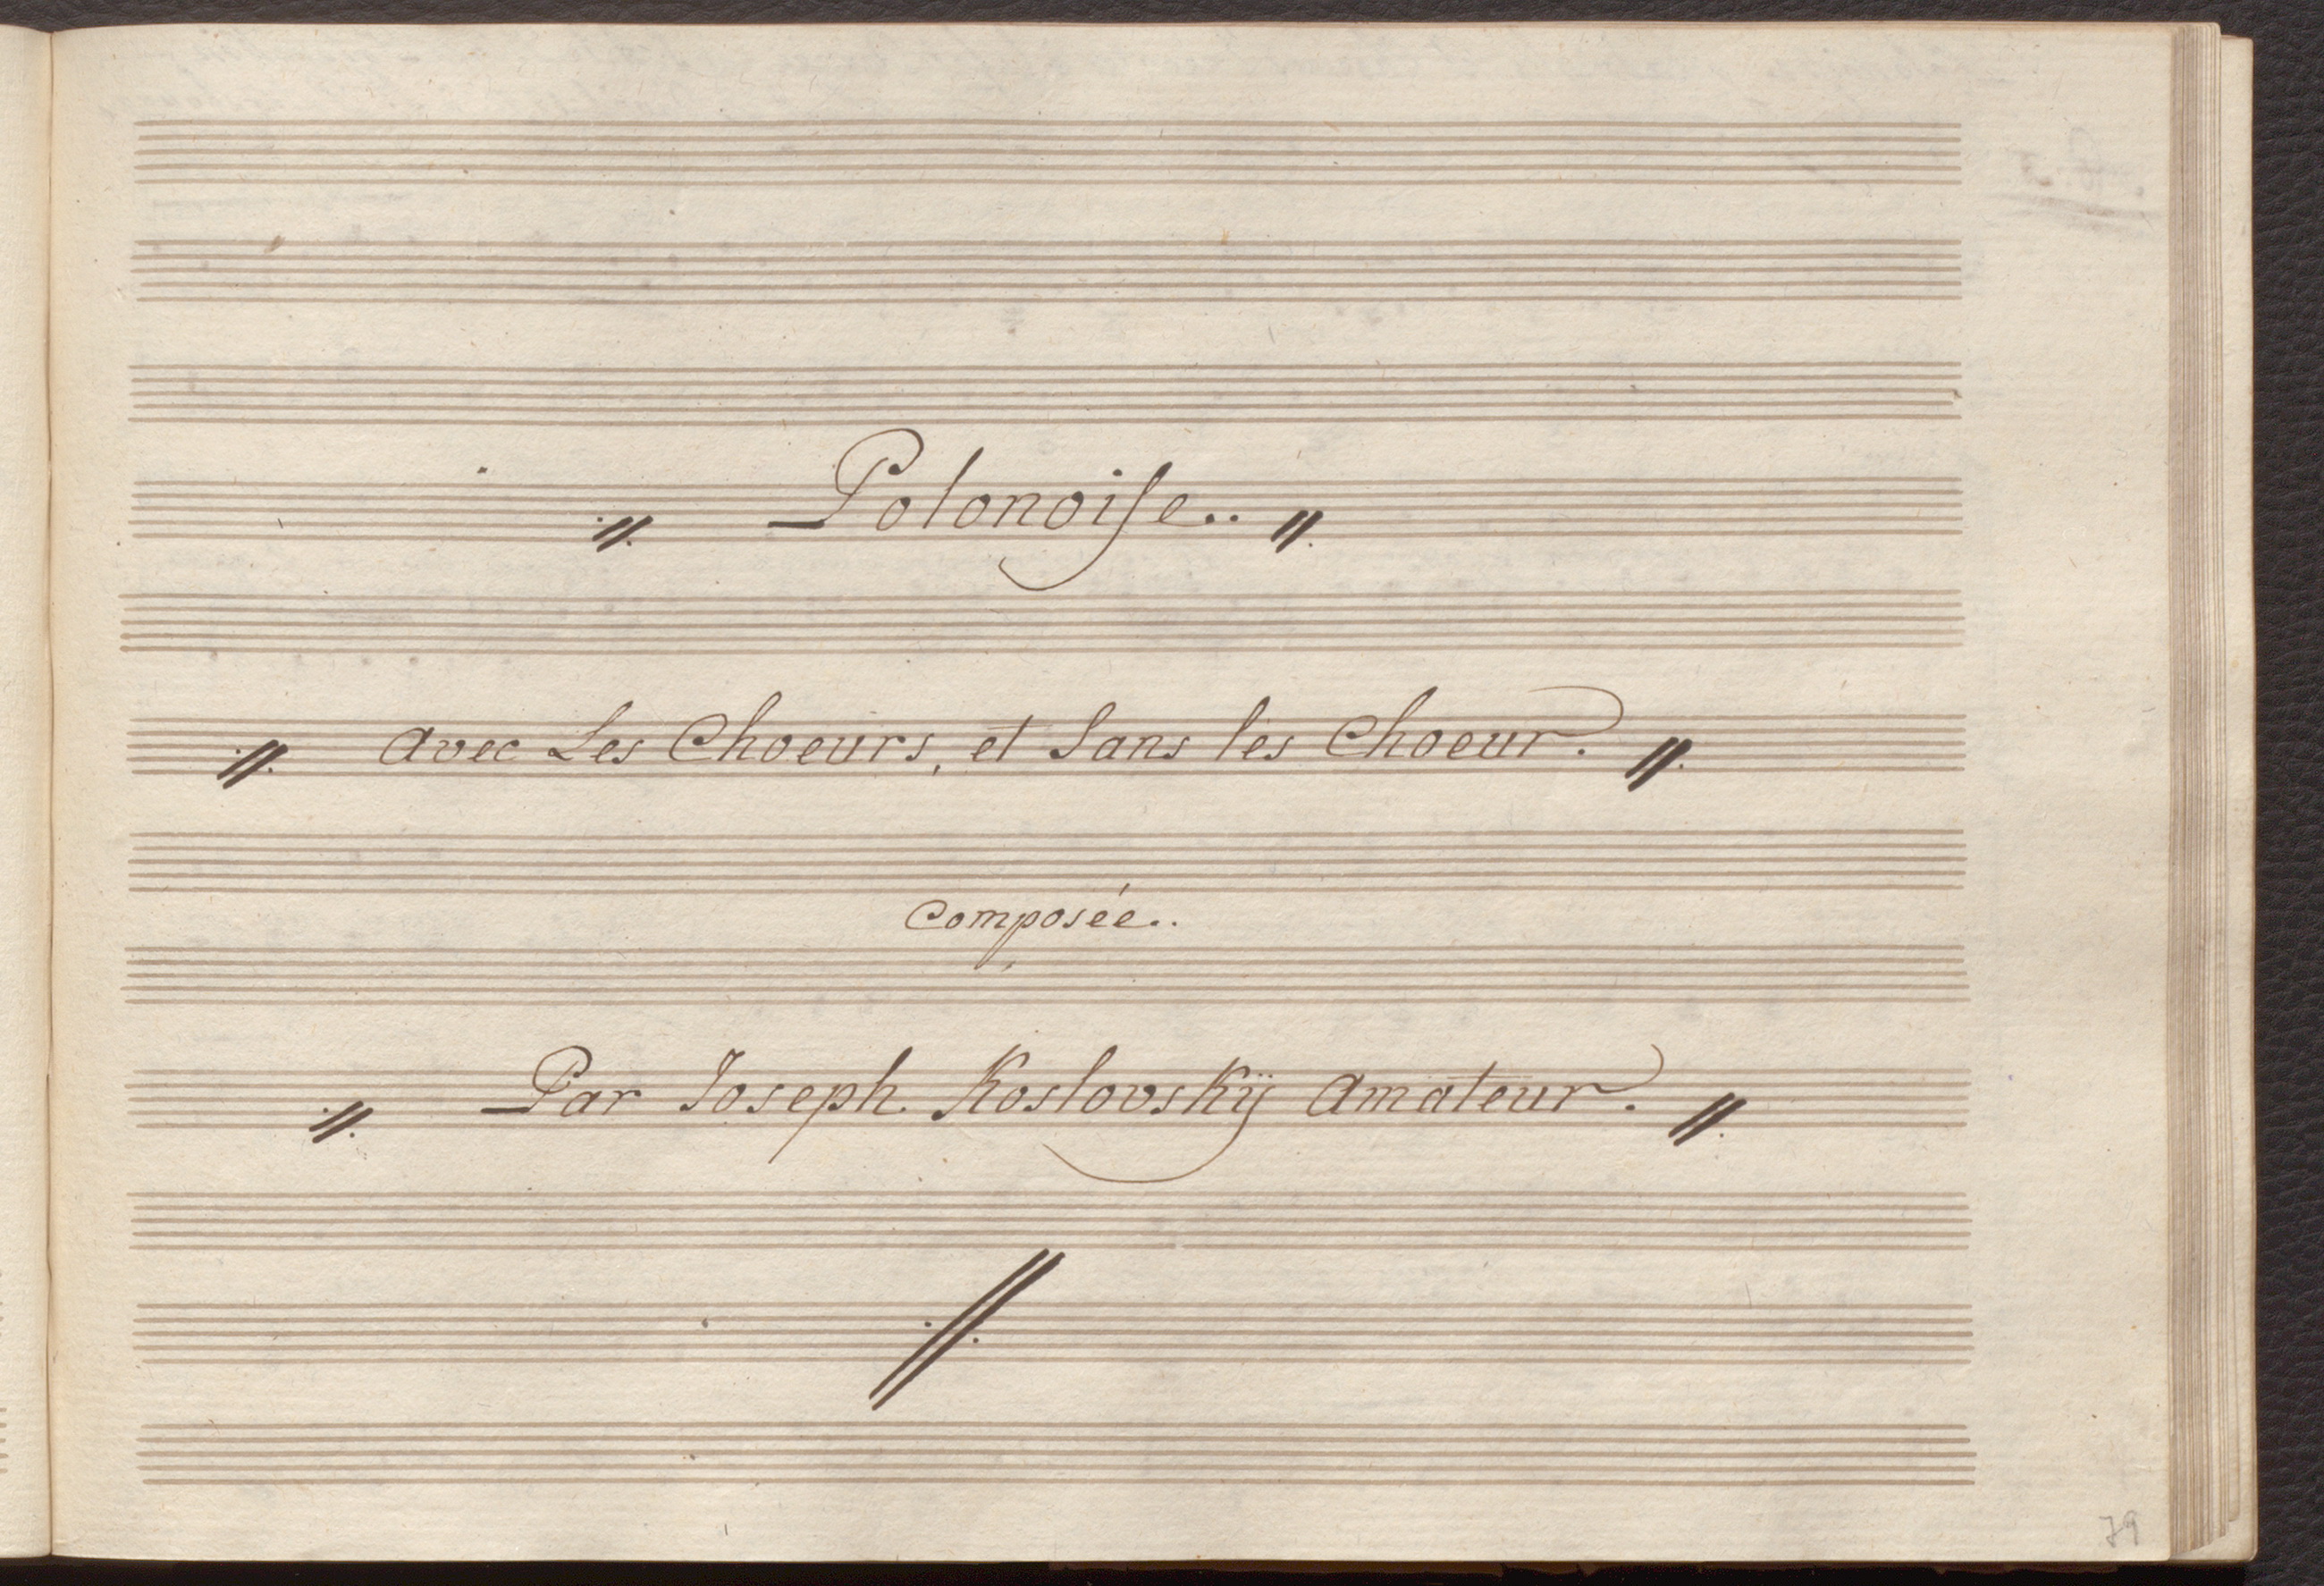 Polonoiſe..
avec Les Choeurs, et Sans les Choeur.
Composée..
Par Joseph Koslovskÿ Amateur.
79